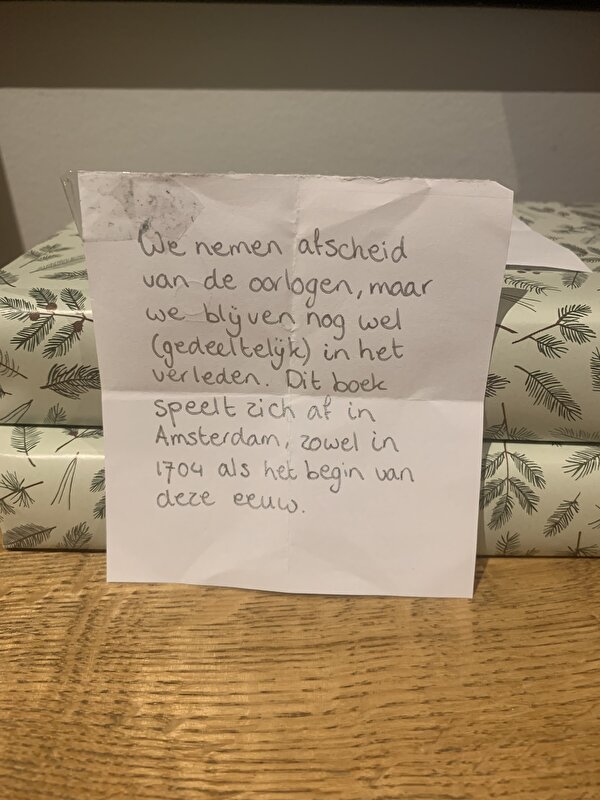 We nemen afscheid
van de oorlogen, maar
we blijven nog wel
(gedeeltelijk) in het
verleden. Dit boek
speelt zich af in
Amsterdam, zowel in
1704 als het begin van
deze eeuw.